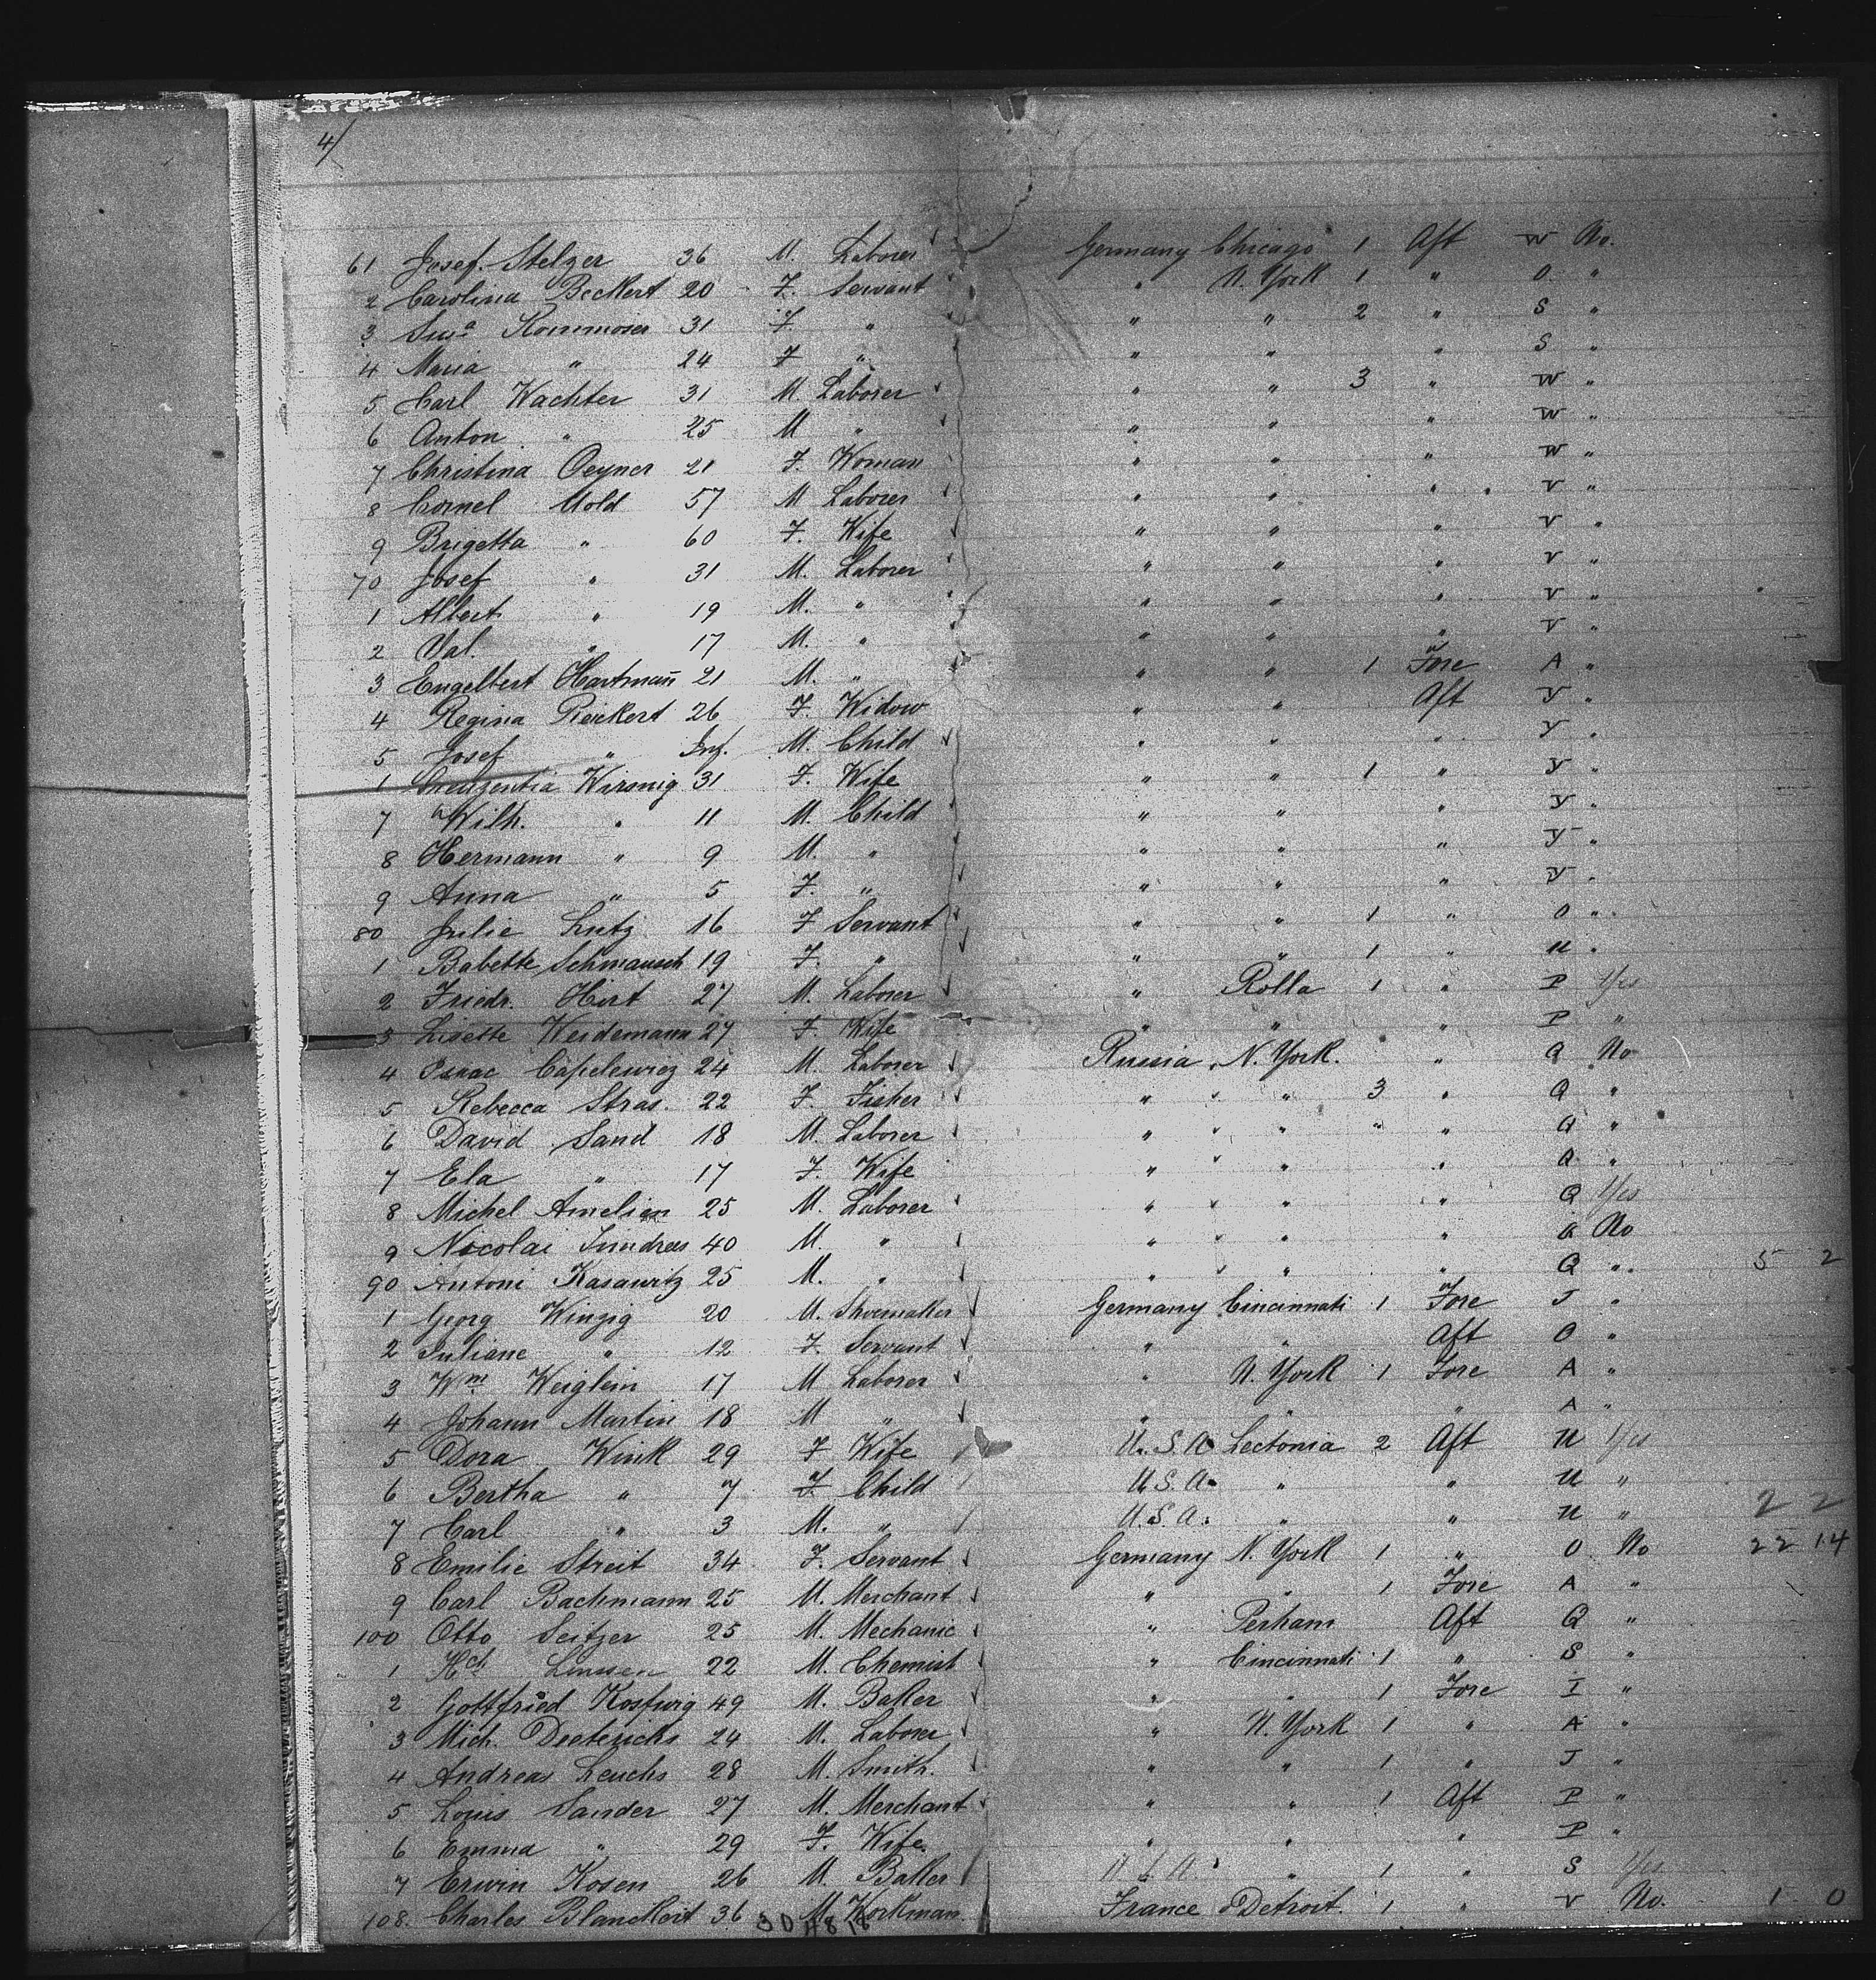 4/
61 Josef. Stelzer 36 M. Laborer Germany Chicago 1 Aft W No.
2 Carolina Beckert 20 F. Servant " N. York 1 " O. "
3 31 F " " " 2 " S "
4 Maria " 24 F " " " " S "
5 Carl Wachter 31 M. Laborer " " 3 " W "
6 Anton " 25 M " " " " W "
7 Christina Oeyner 21 F. Woman " " " W "
8 Cornel Mold 57 M Laborer " " " V "
9 Brigetta " 60 F. Wife " " " V "
70 Josef " 31 M. Laborer " " " V "
1 Albert " 19 M. " " " " V "
2 Val. " 17 M. " " " " V "
3 Engelbert Hartmañ 21 M. " " " 1 Fore A "
4 Regina Reickert 26 F. Widow " " Aft Y "
5 Josef " Inf. M. Child " " " Y "
1 Wirsnig 31 F. Wife " " 1 " Y "
7 Wilh. " 11 M. Child " " " Y "
8 Hermann " 9 M. " " " " Y "
9 Anna " 5 F. " " " " Y "
80 Julie Lutz 16 F Servant " " 1 " O "
1 Babette Schmausch 19 F. " " " 1 " U "
2 Friedr. Hirt 27 M. Laborer " Rolla 1 " P Yes
3 Lisette Weidemann 27 F. Wife " " " P "
4 24 M. Laborer Russia N. York. " Q No
5 Rebecca Stras. 22 F. Fisher " " 3 " Q "
6 David Sand 18 M. Laborer " " " " Q "
7 Ela " 17 F. Wife " " " Q "
8 Michel Amelien 25 M. Laborer " " " Q Yes
9 Nicolai 40 M. " " " " Q No
90 Antoni Kasawitz 25 M. " " " " Q " 5 2
1 Georg Winzig 20 M. Shoemaker Germany Cincinnati 1 Fore J "
2 Juliane " 12 F. Servant " " Aft O "
3 Wm Weiglein 17 M Laborer " N. York 1 Fore A "
4 Johann Martin 18 M " " " " A "
5 Dora Wink 29 F Wife U.S.A. Leetonia 2 Aft U Yes
6 Bertha " 7 F. Child U.S.A. " " U "
7 Carl " 3 M. " U.S.A. " " U " 2 2
8 Emilie Streit 34 F. Servant Germany N. York 1 " O No 22 14
9 Carl Bachmann 25 M. Merchant " " 1 Fore A "
100 Otto Seitzer 25 M. Mechanic " Perham Aft Q "
1 Hch Linssen 22 M. Chemist " Cincinnati 1 " S "
2 Gottfried Kostwig 49 M. Baker " " 1 Fore I "
3 Mich. Dieterichs 24 M. Laborer " N. York 1 " A "
4 Andreas Leuchs 28 M. Smith. " " 1 " J "
5 Louis Sander 27 M. Merchant " " 1 Aft P "
6 Emma " 29 F. Wife. " " " P "
7 Erwin Kosen 26 M. Baker U.S.A. " 1 " S Yes
108. Charles Blanckert 36 M. Workman. France Detroit. 1 " V No. 1 0